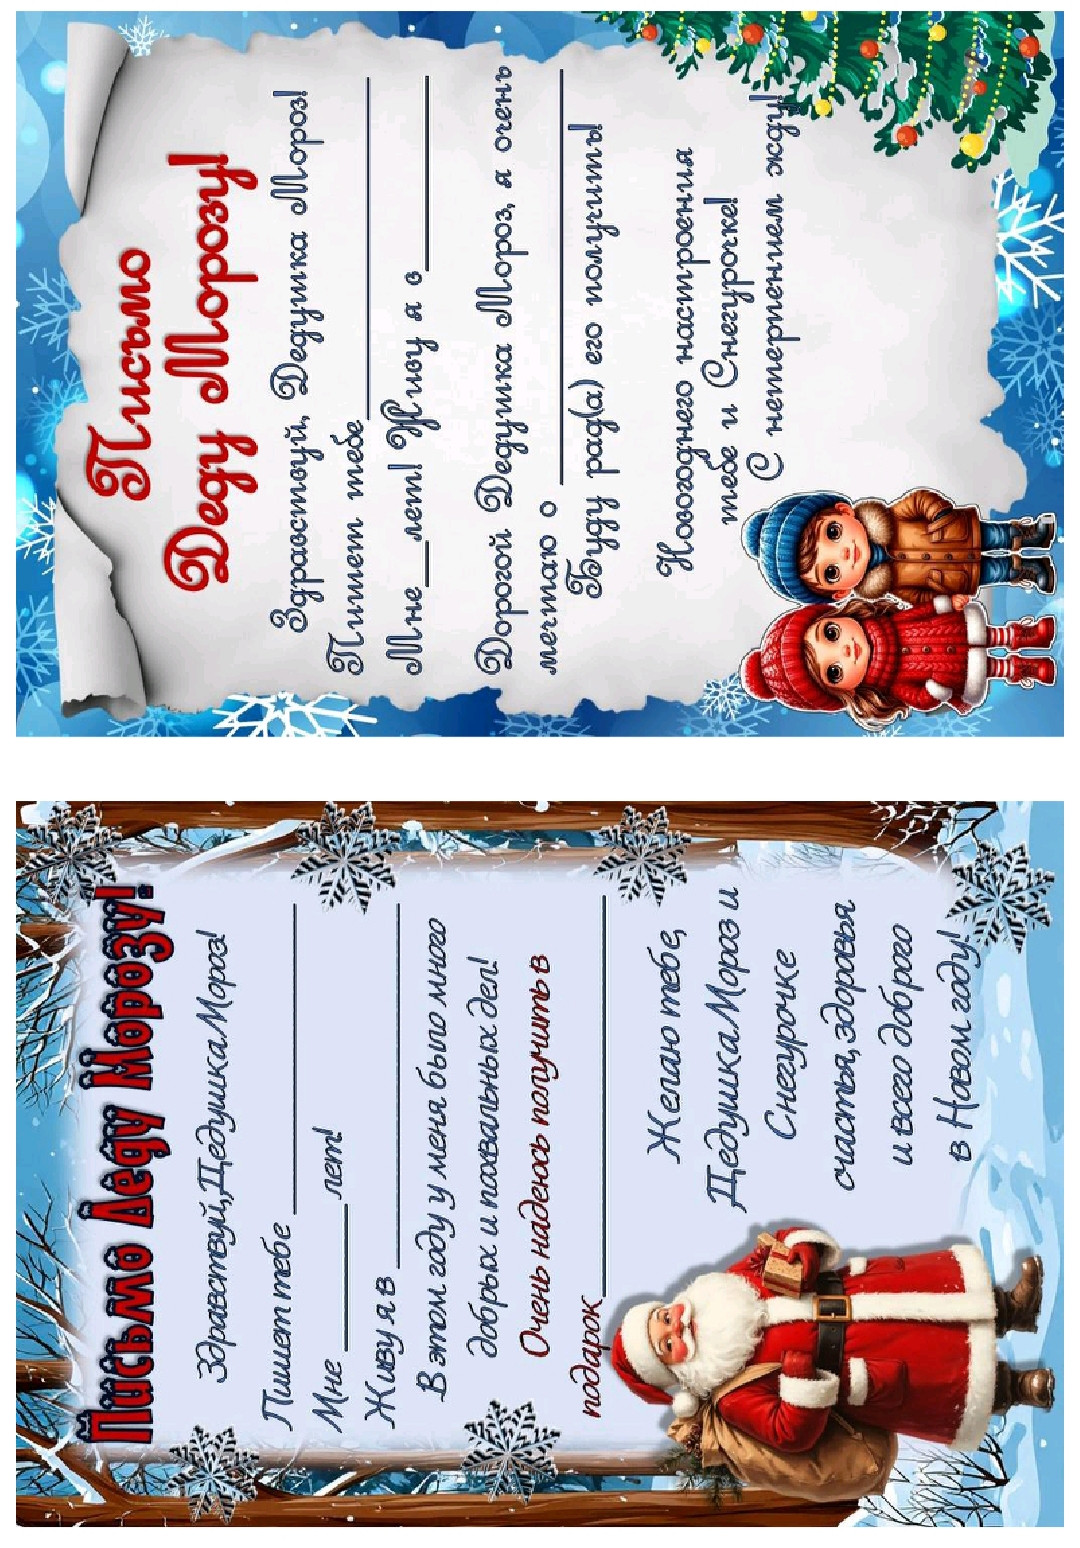 Письмо
Деду Морозу!
Здравствуй, Дедушка Мороз!
Пишет тебе
Мне___лет! Живу я в
Дорогой Дедушка Мороз, я очень
мечтаю о
Буду рад(а) его получить!
Новогоднего настроения
тебе и Снегурочке!
С нетерпением жду!
Письмо Деду Морозу!
Здравствуй, Дедушка Мороз!
Пишет тебе
Мне ______ лет!
Живу я в
В этом году у меня было много
добрых и похвальных дел!
Очень надеюсь получить в
подарок
Желаю тебе,
Дедушка Мороз и
Снегурочке
счастья, здоровья
и всего доброго
в Новом году!